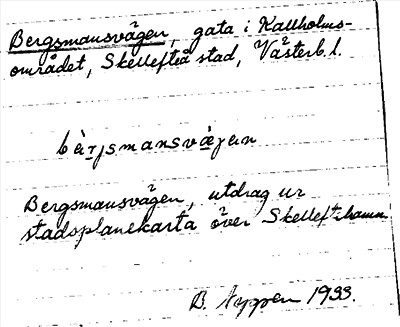 Bergsmansvägen, gata i Kallholms-
området, Skellefteå stad, Västerb. l.
bæ̀rjsmansvæ̀gen
Bergsmansvägen, utdrag ur
stadsplanekarta över Skelleftehamn
B. 1933.